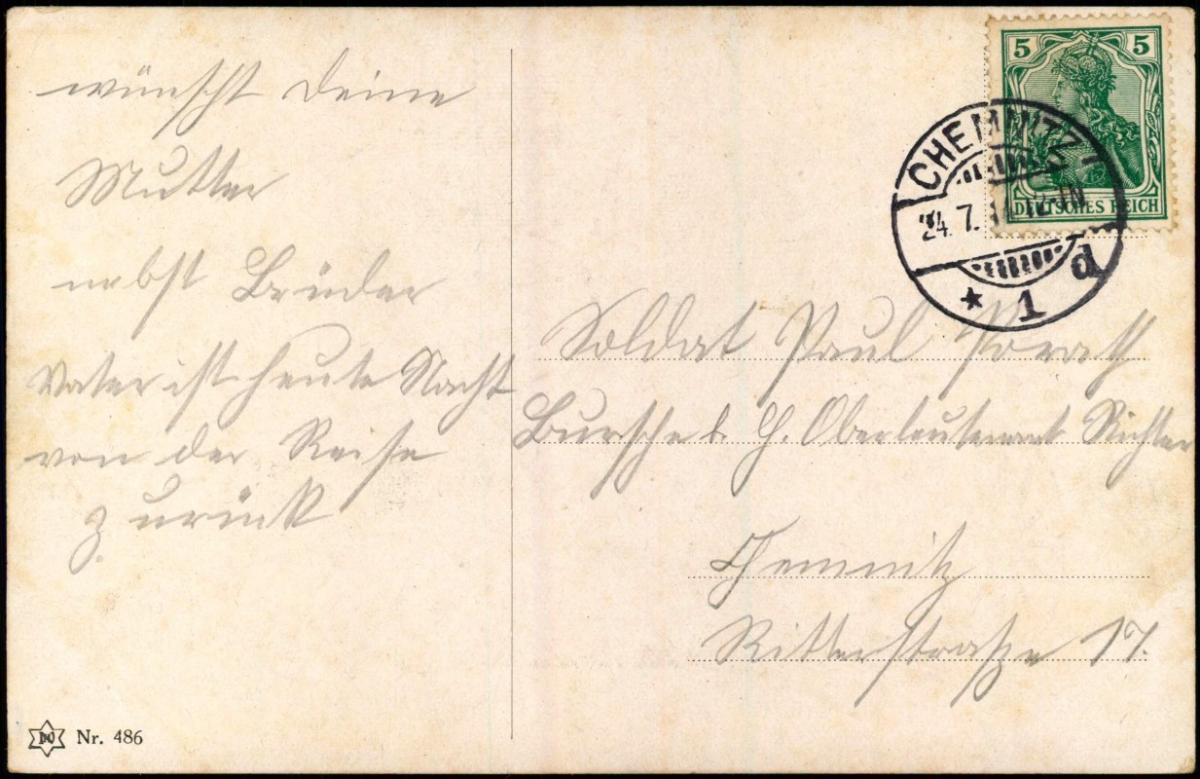 wünscht Deine
Mutter
nebst Brüder
Vater ist heute Nacht
von der Reise
zurück
Nr. 486
5 5
DEUTSCHES REICH
CHEMNITZ
24. 7.
* 1 d
Soldat Paul
Bursche b. H. Oberleutenant Richter
Chemnitz
Ritterstraße 17.